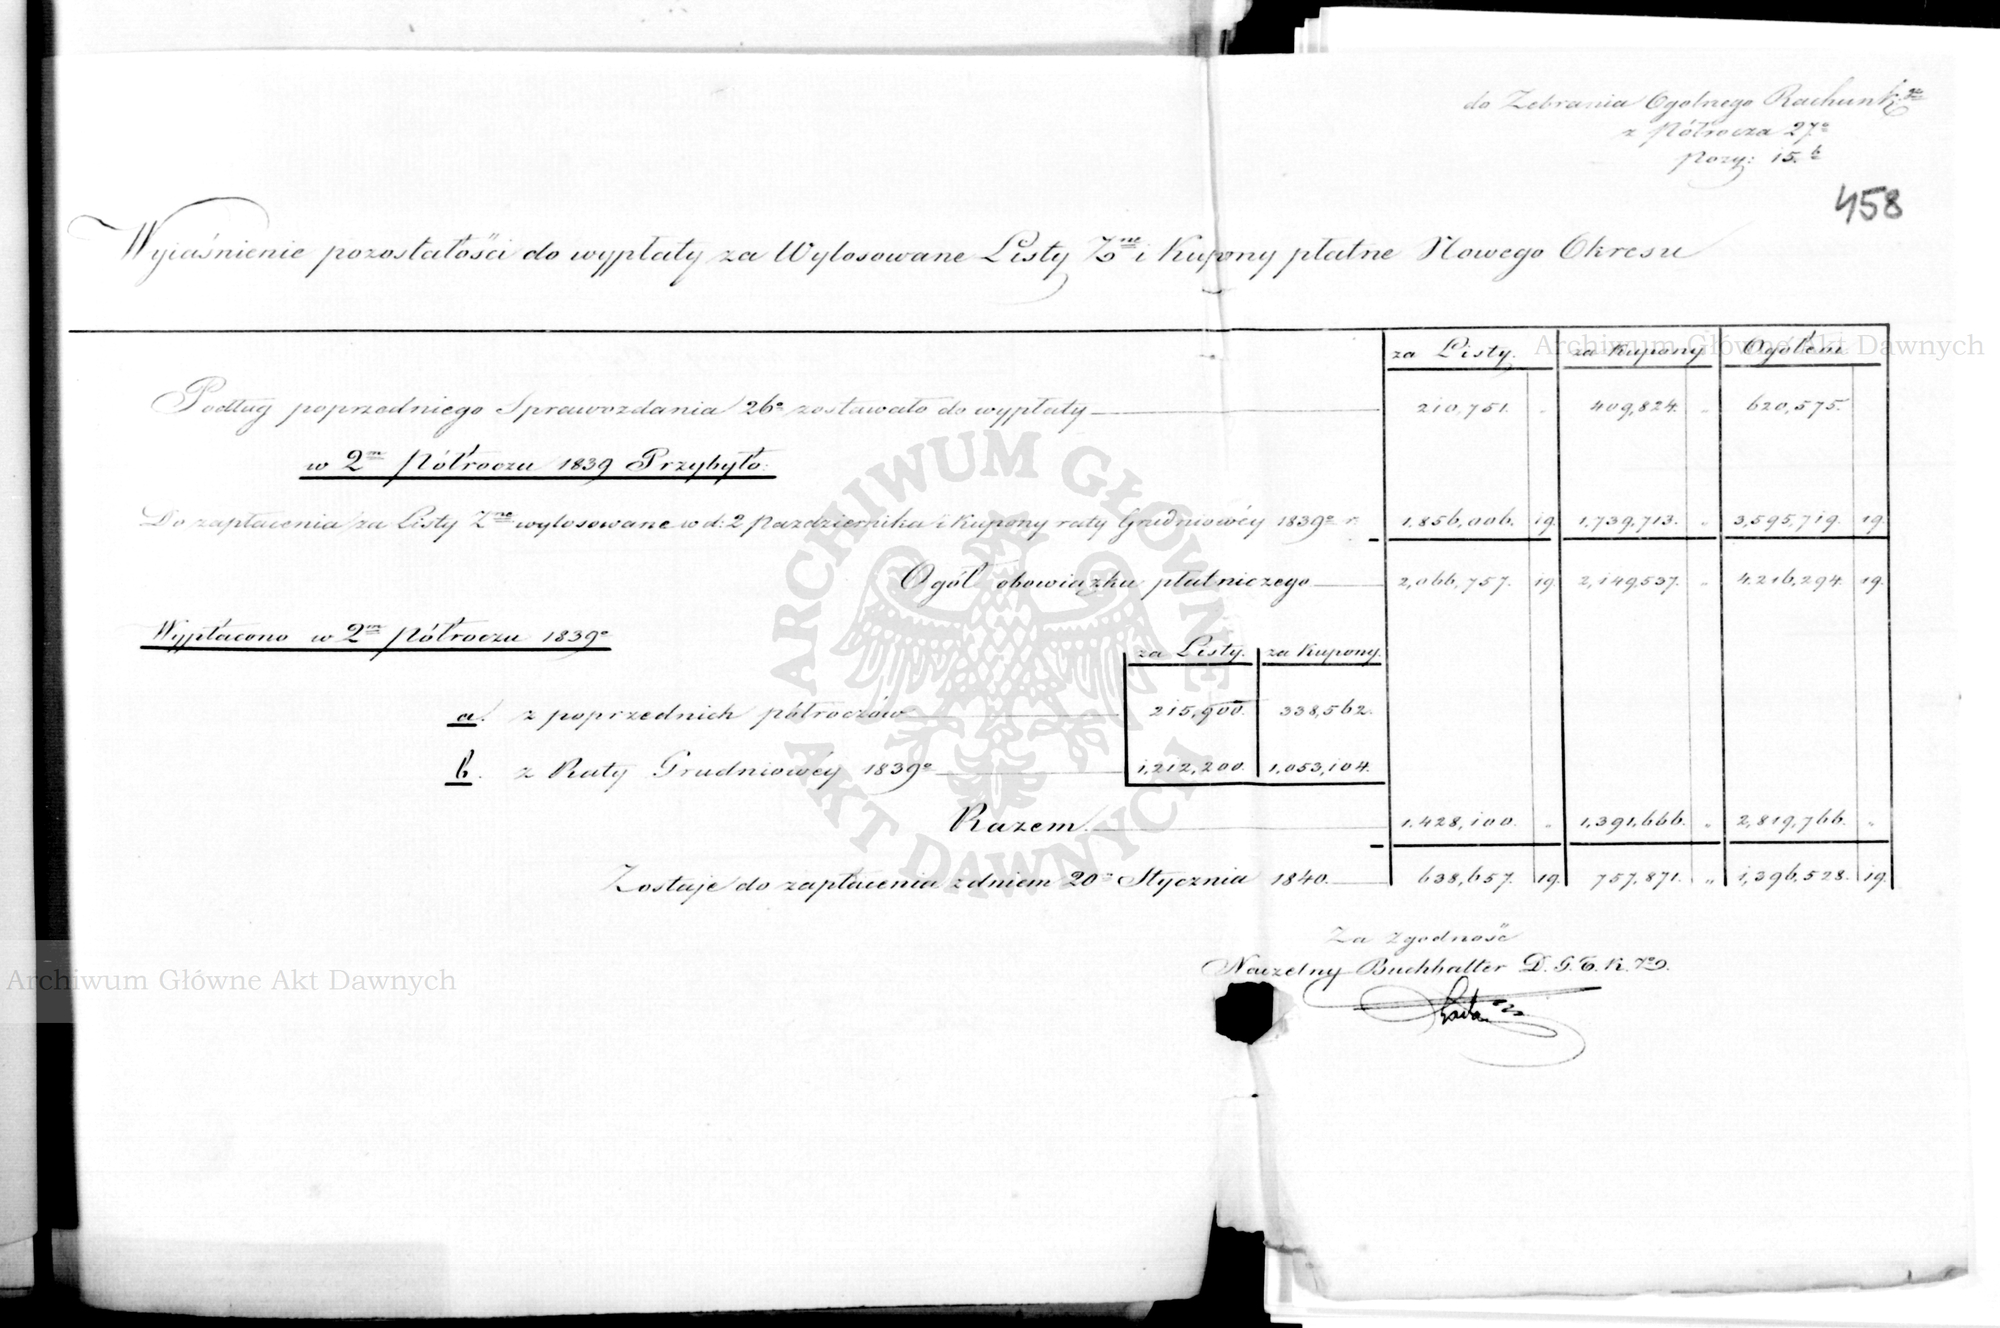 do Zebrania Ogólnego Rachunk.
z Półrocza 27º
pozy: 15.b
458
Wyjaśnienie pozostałości do wypłaty za Wylosowane Listy Zne i Kupony płatne Nowego Okresu
za Listy. za Kupony Ogółem
Podług poprzedniego Sprawozdania 26º zostawało do wypłaty 210,751. " 409,824. " 620,575.
w 2m Półroczu 1839 Przybyło:
Do zapłacenia za Listy Zne wylosowane w d: 2 Października i Kupony raty Grudniowéy 1839º r. 1,856,006. 19. 1,739,713. " 3,595,719. 19.
Ogół obowiązku płatniczego 2,066,757. 19 2,149,537. " 4,216,294. 19.
Wypłacono w 2m Półroczu 1839º
za Listy. za Kupony.
a. z poprzednich półroczów 215,900. 338,562.
b. z Raty Grudniowéy 1839º 1,212,200. 1,053,104.
Razem 1,428,100. " 1,391,666. " 2,819,766. "
Zostaje do zapłacenia z dniem 20º Stycznia 1840. 638,657. 19. 757,871. " 1,396,528. 19.
Za zgodność
Naczelny Buchhalter D. G. T. K. Zgo.
Archiwum Główne Akt Dawnych
Archiwum Główne Akt Dawnych
ARCHIWUM GŁÓWNE AKT DAWNYCH